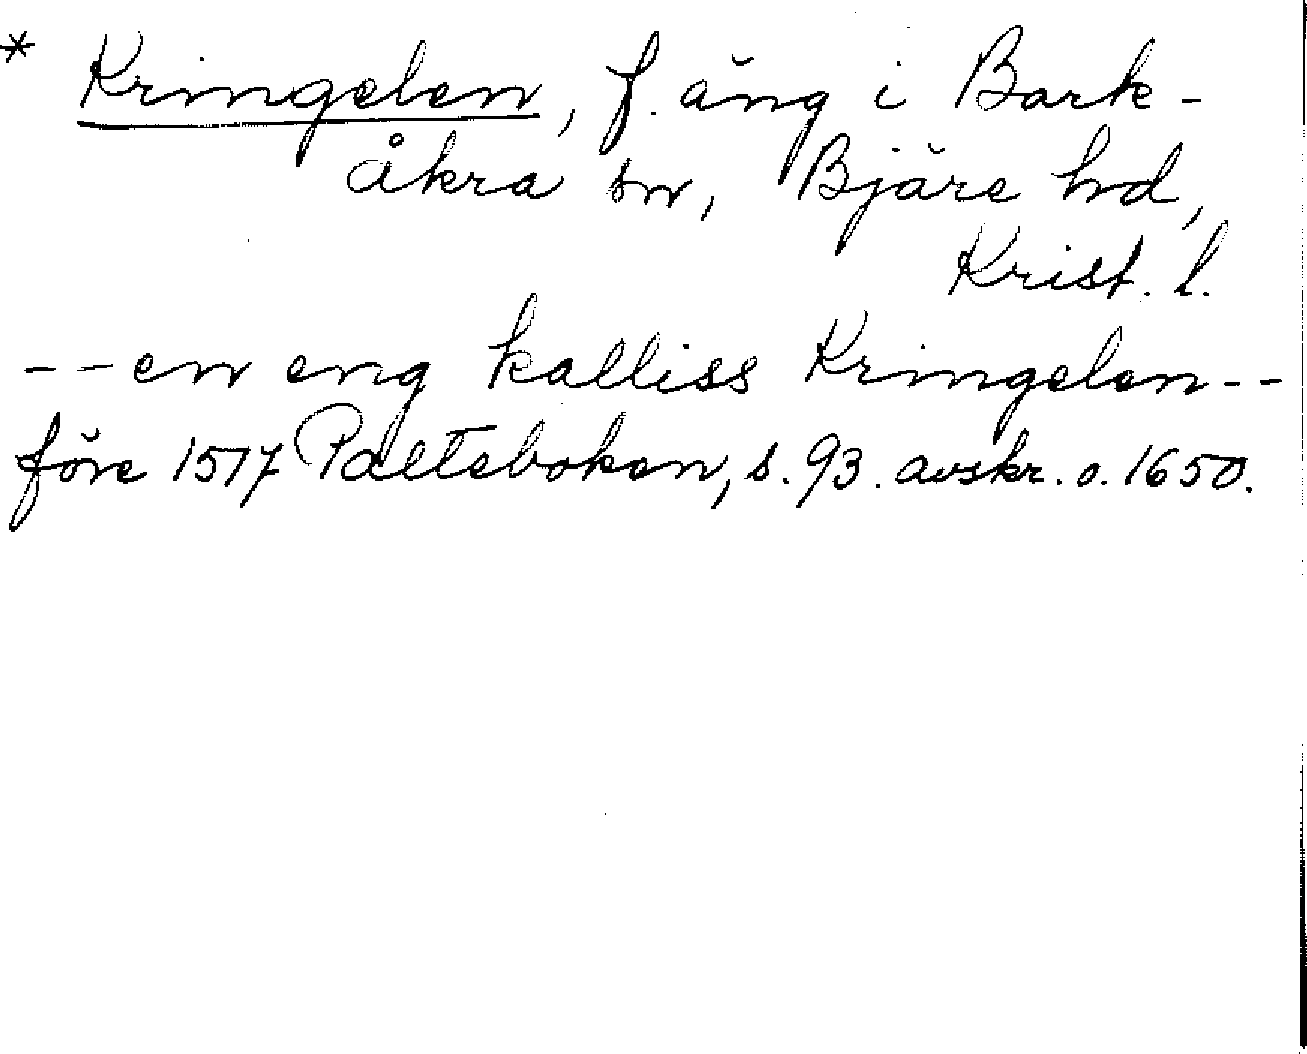 * Kringelen, f. äng i Bark-
åkra sn, Bjäre hd,
Krist. l.
--en eng kalliss Kringelen--
före 1517 Palteboken, s. 93. avskr. o. 1650.